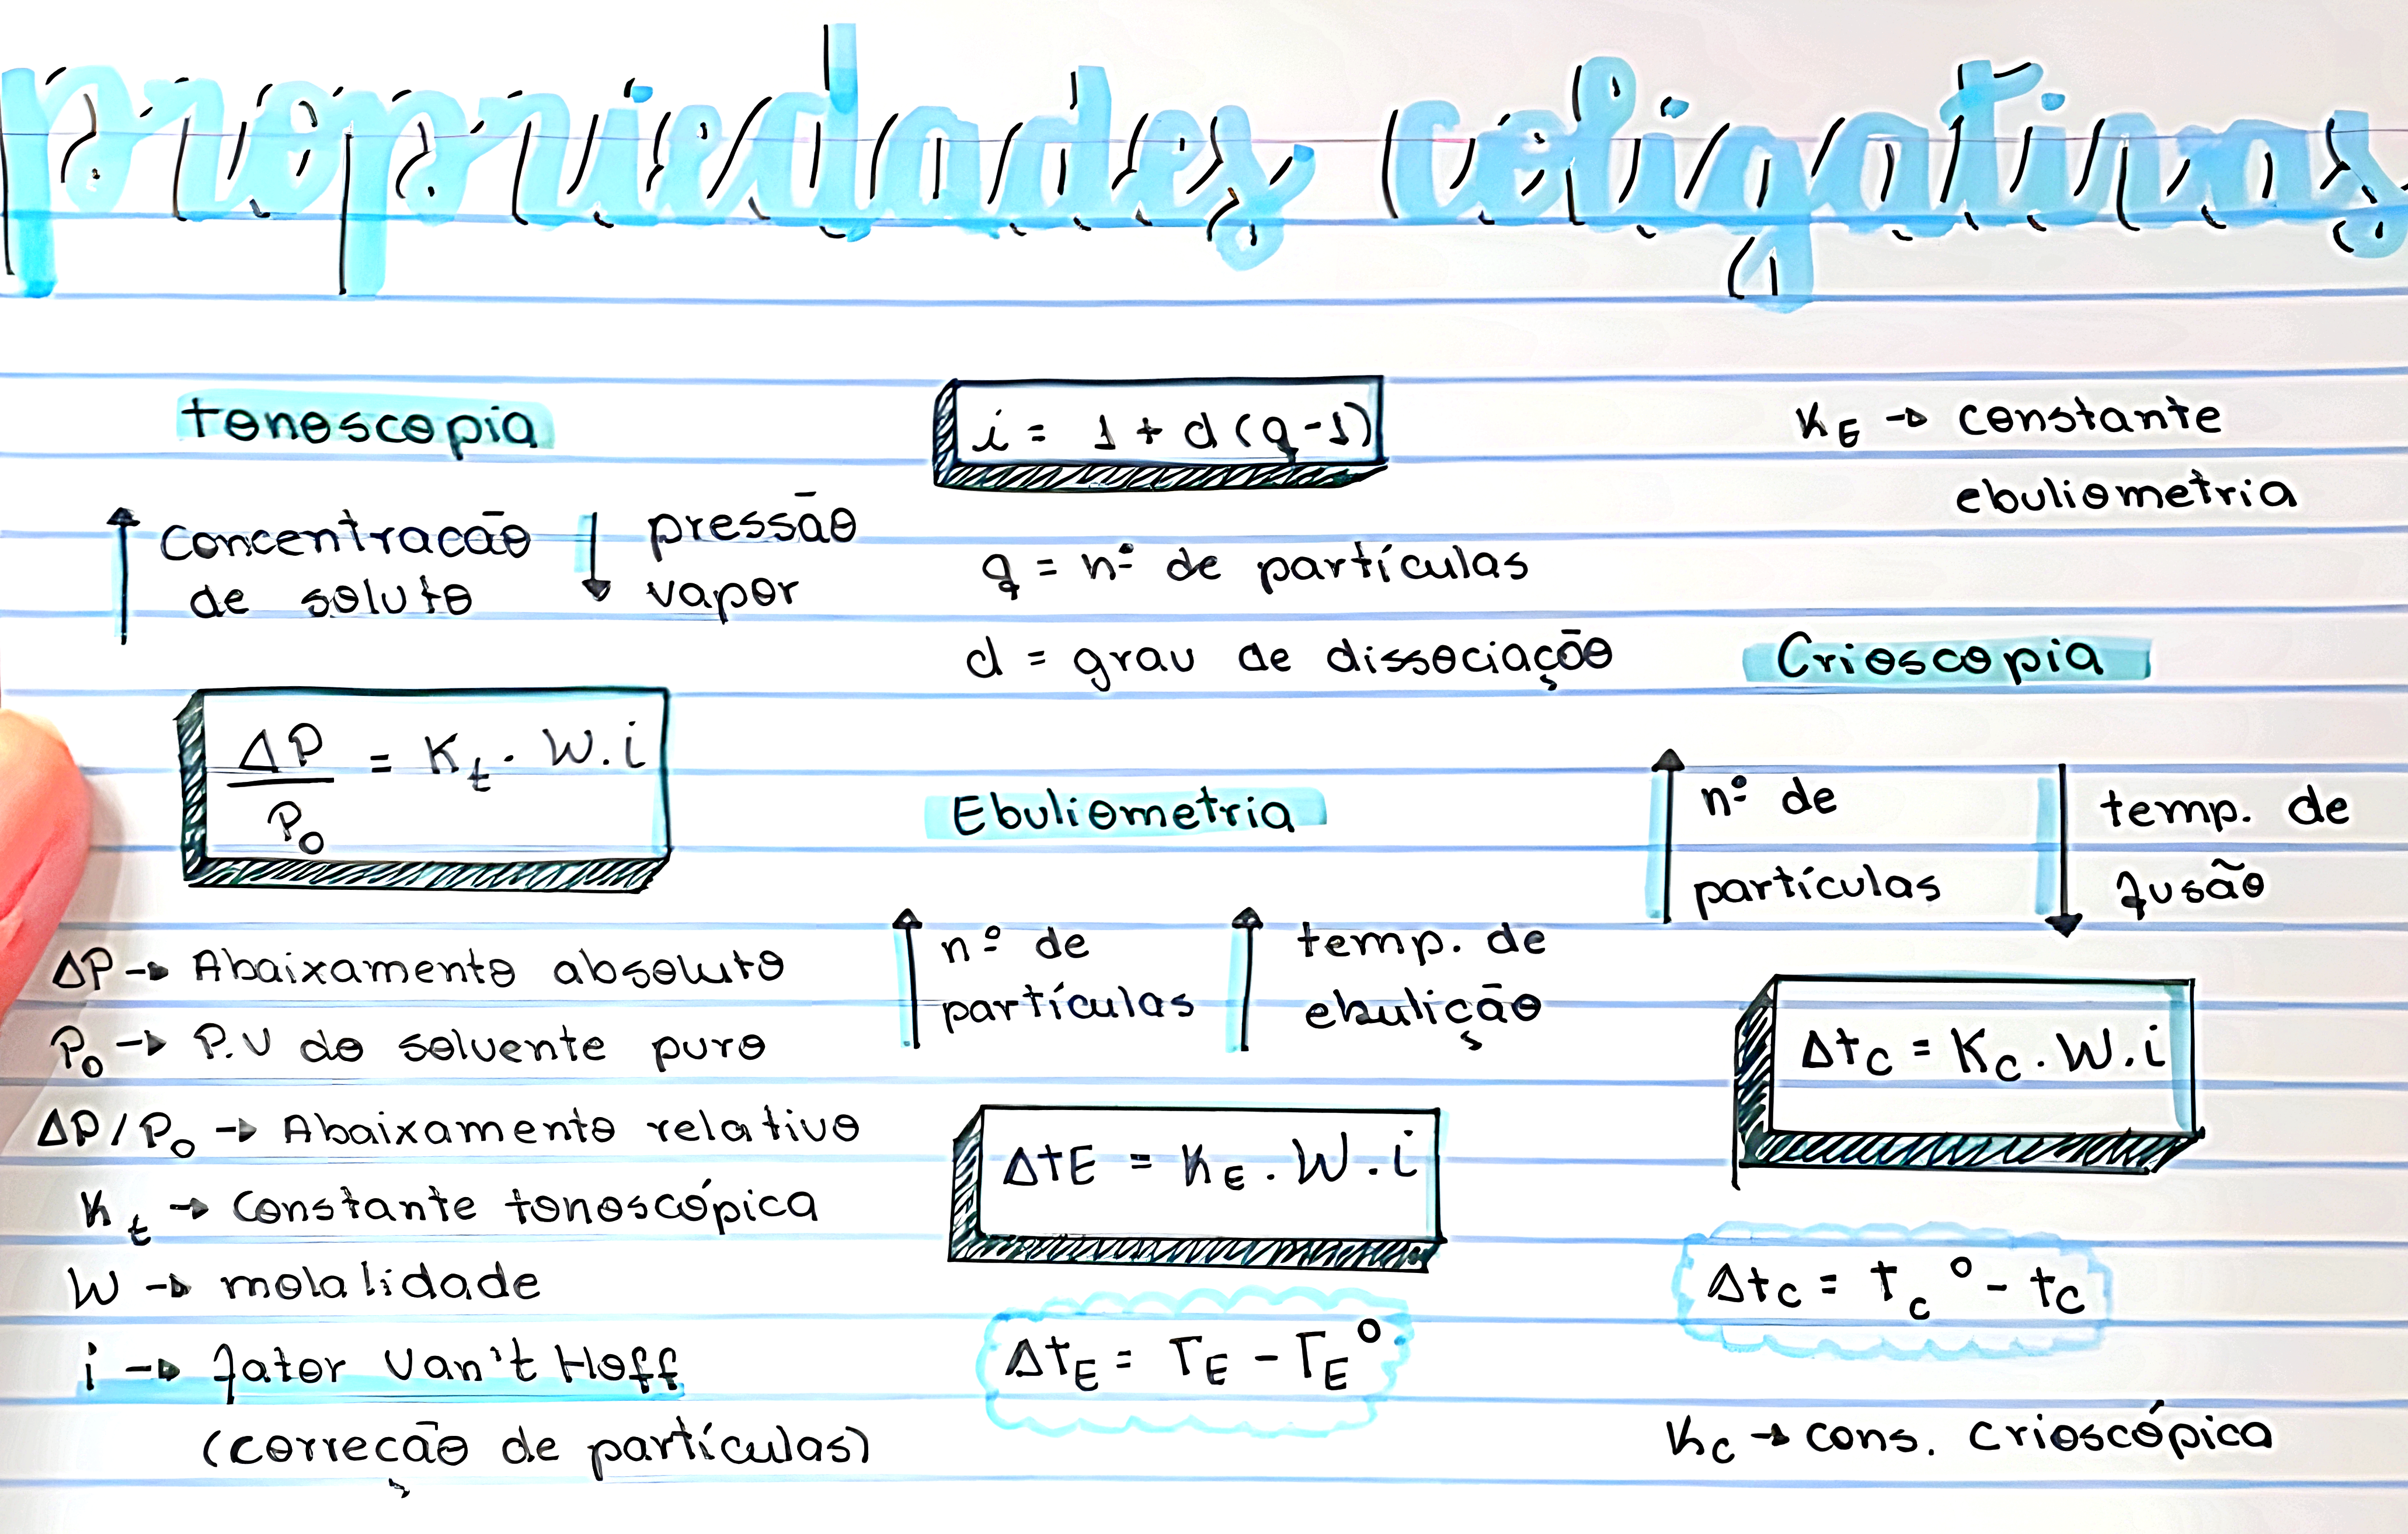 propriedades coligativas
tonoscopia
↑ concentracão ↓ pressão
de soluto vapor
ΔP/P₀ = Kt . W . i
ΔP → Abaixamento absoluto
P₀ → P.V do solvente puro
ΔP/P₀ → Abaixamento relativo
Kt → constante tonoscópica
W → molalidade
i → fator Van't Hoff
(correção de partículas)
i = 1 + d (q - 1)
q = nº de partículas
d = grau de dissociação
Ebuliometria
↑ nº de ↑ temp. de
partículas ebulição
ΔtE = KE . W . i
ΔtE = TE - TE°
KE → constante
ebuliometria
Crioscopia
↑ nº de ↓ temp. de
partículas fusão
Δtc = Kc . W . i
Δtc = tc° - tc
Kc → cons. crioscópica